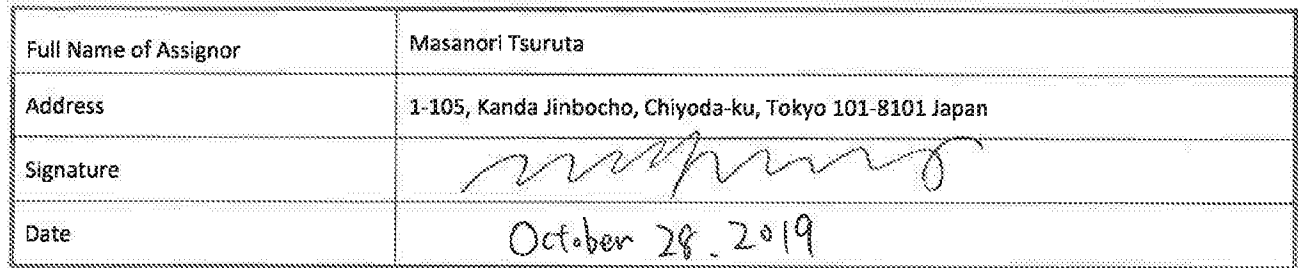 Full Name of Assignor Masanori Tsuruta
Address 1-105, Kanda Jinbocho, Chiyoda-ku, Tokyo 101-8101 Japan
Signature
Date October 28. 2019